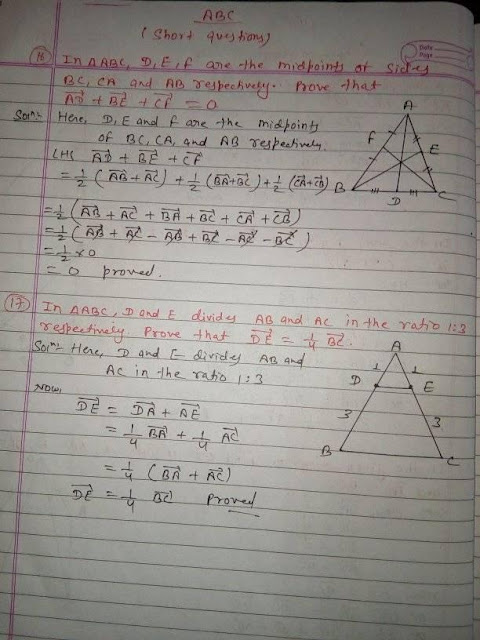 ABC
(Short questions)
Date
Page
16 In ΔABC, D, E, F are the midpoints of sides
BC, CA and AB respectively. Prove that
AD→ + BE→ + CF→ = 0
Solⁿ:- Here, D, E and F are the midpoints
of BC, CA, and AB respectively.
LHS AD→ + BE→ + CF→
= 1/2 (AB→ + AC→) + 1/2 (BA→ + BC→) + 1/2 (CA→ + CB→)
= 1/2 (AB→ + AC→ + BA→ + BC→ + CA→ + CB→)
= 1/2 (AB→ + AC→ - AB→ + BC→ - AC→ - BC→)
= 1/2 × 0
= 0 proved.
A
F
E
B
D
C
17 In ΔABC, D and E divides AB and AC in the ratio 1:3
respectively. Prove that DE→ = 1/4 BC→.
Solⁿ:- Here, D and E divides AB and
AC in the ratio 1:3
Now,
DE→ = DA→ + AE→
= 1/4 BA→ + 1/4 AC→
= 1/4 (BA→ + AC→)
DE→ = 1/4 BC→ Proved
A
1 1
D E
3 3
B C